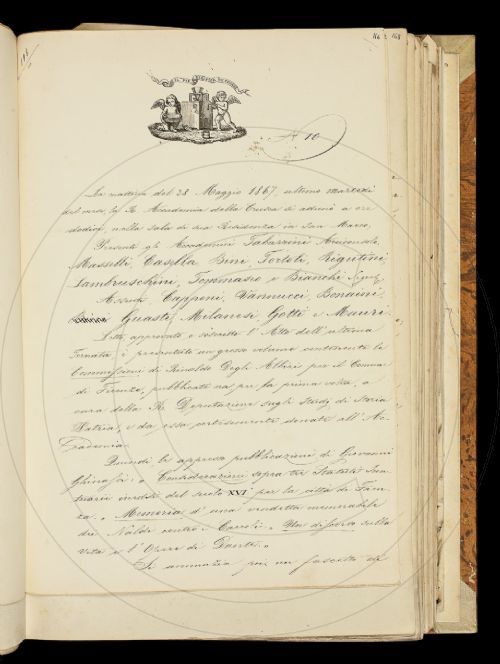 N 10
La mattina del 28 Maggio 1867, ultimo martedì
del mese, la R. Accademia della Crusca si adunò a ore
dodici, nella sala di sua Residenza in San Marco,
Presenti gli Accademici Tabarrini Arciconsolo,
Masselli, Casella, Bini, Tortoli, Rigutini,
Lambruschini, Tommaseo e Bianchi Segr.
Assenti, Capponi, Vannucci, Bonaini,
Guasti, Milanesi, Gotti e Mauri.
Letto approvato e sottoscritto l'Atto dell'ultima
Tornata, è presentato un grosso volume contenente le
Commissioni di Rinaldo Degli Albizi per il Comune
di Firenze, pubblicate ora per la prima volta, a
cura della R. Deputazione sugli Studj di Storia
Patria, e da essa cortesemente donate all'Ac-
cademia.
Quindi le appresso pubblicazioni di Giovanni
Ghinassi: " Considerazioni sopra tre Statuti Sun-
tuari inediti del secolo XVI per la città di Faen-
za. " Memoria d'una vendetta memorabile
dei Naldi contro i " Un discorso sulla
vita e l'Opere di Dante. "
Si annunzia poi un fascicolo di